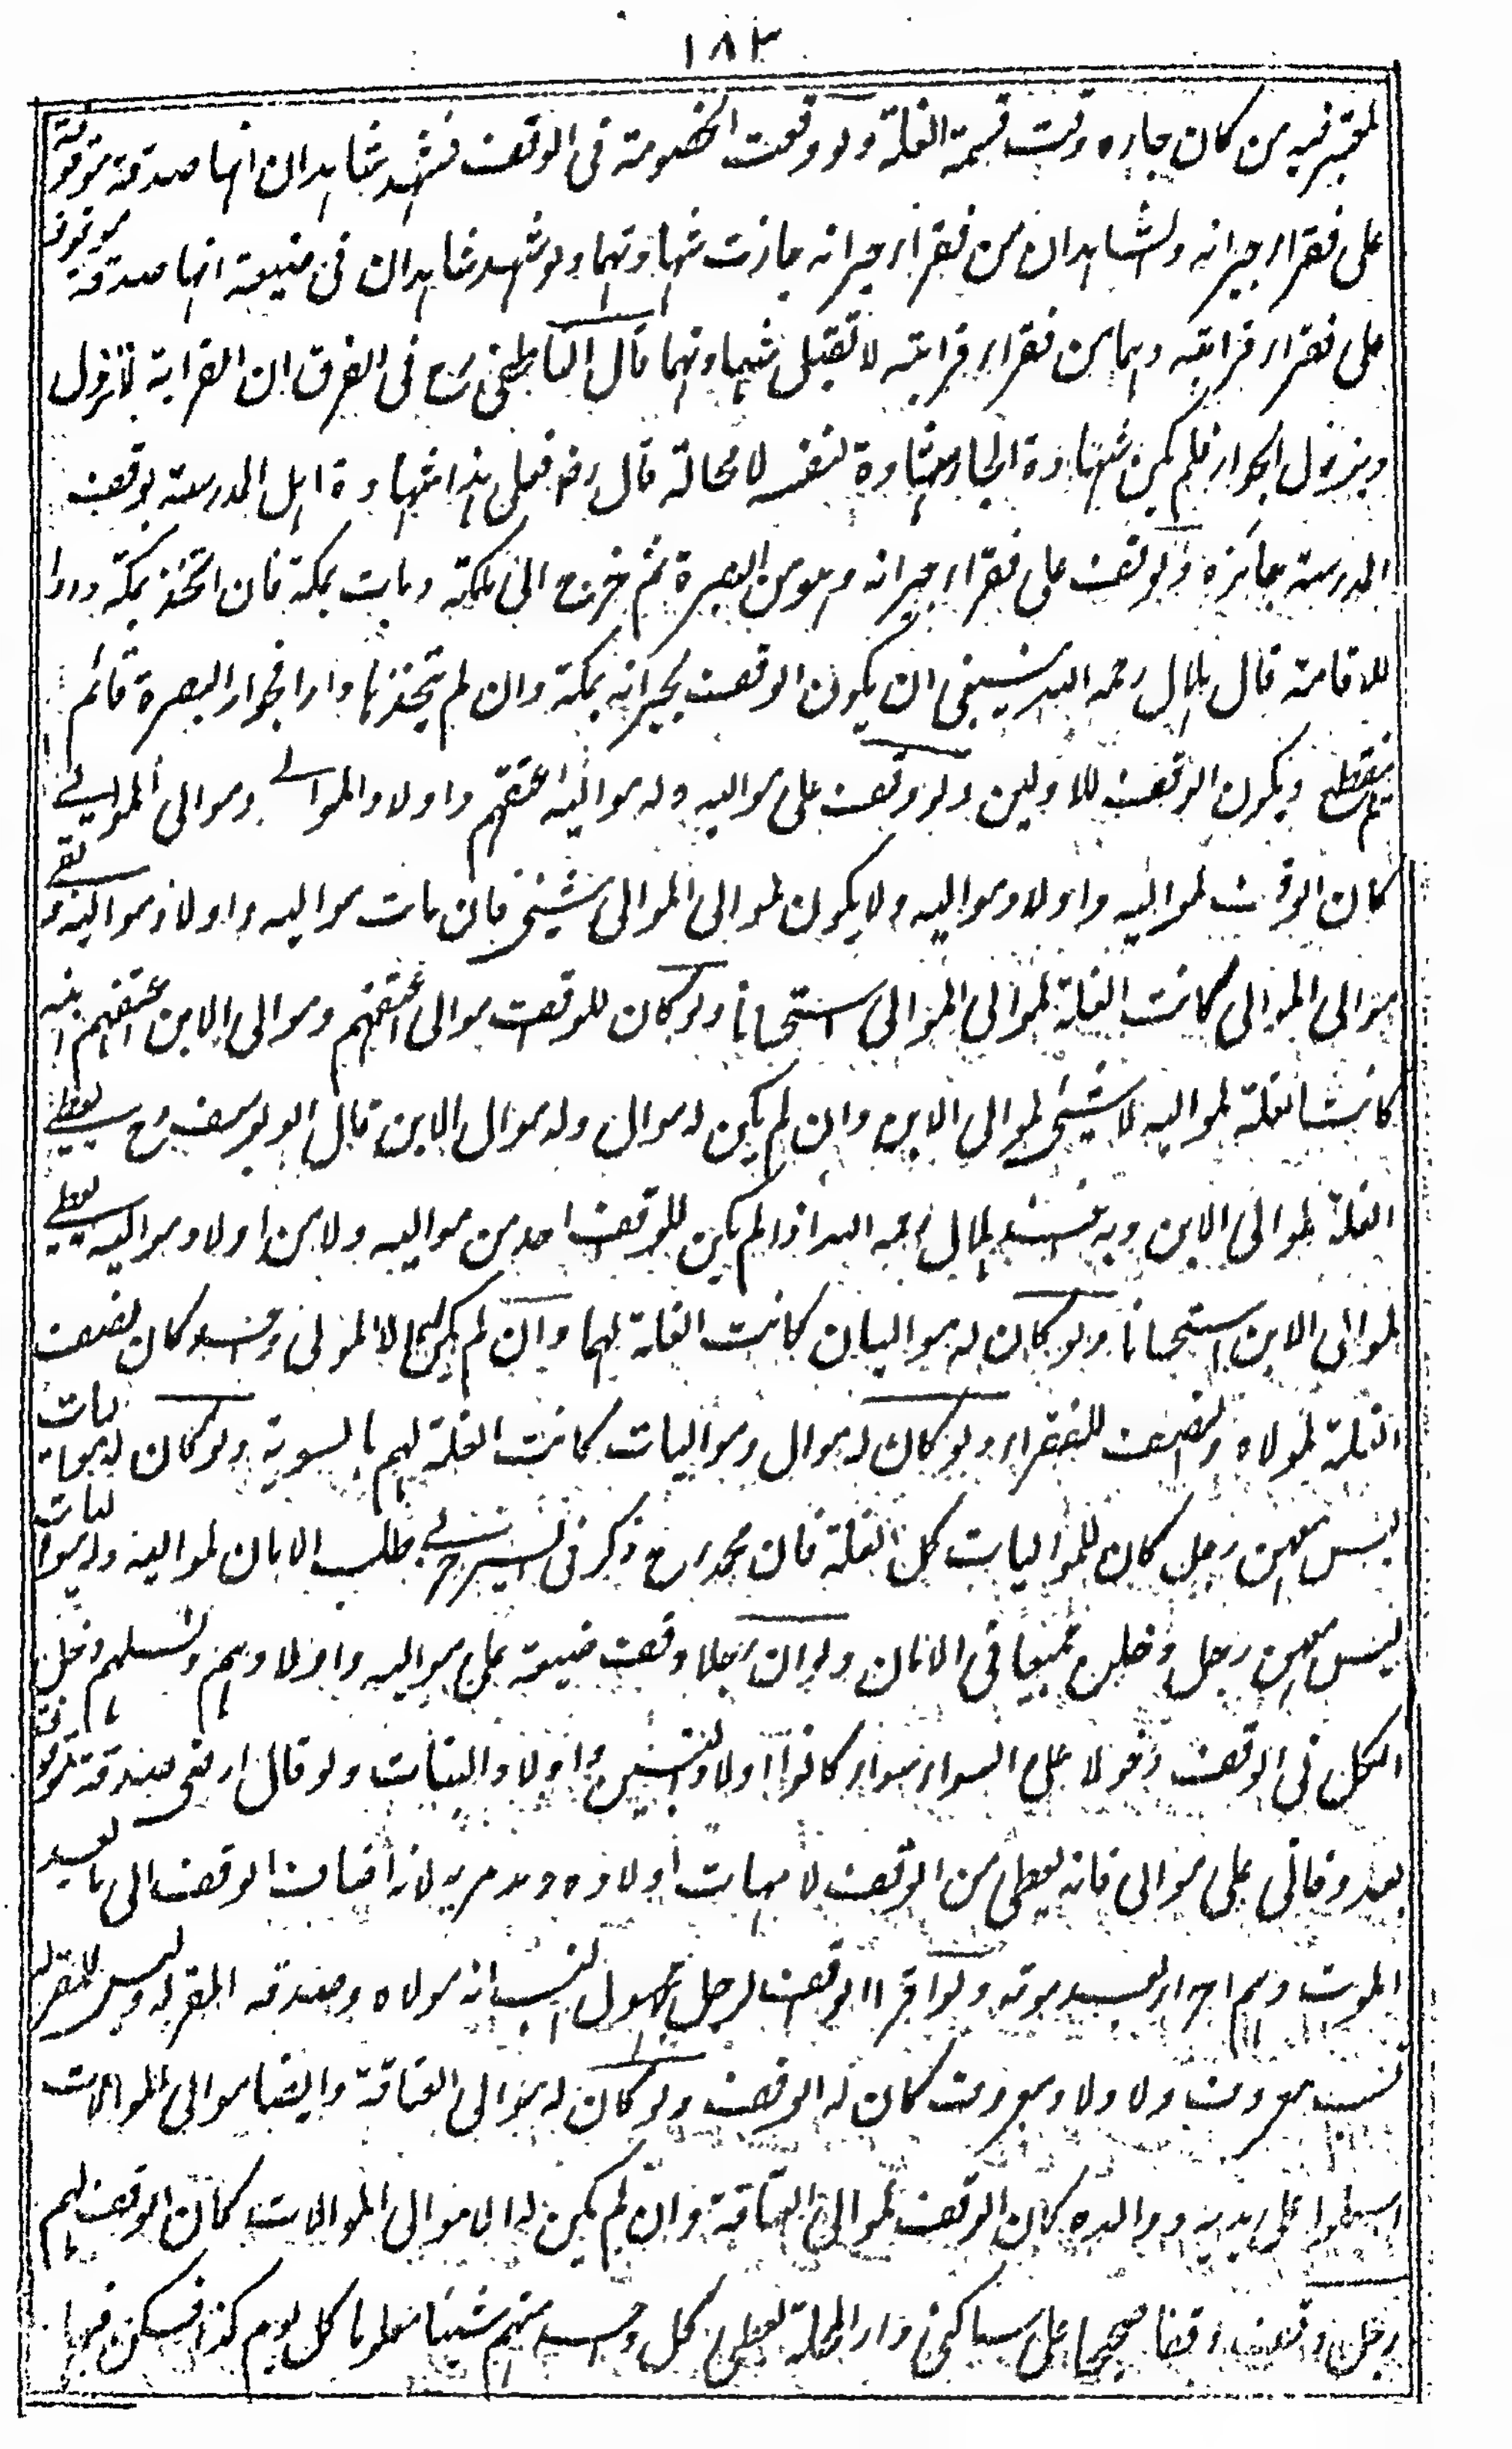 ١٨٣
المعتبر فيه من كان جاره وقت قسمة الغلة ولو وقعت الخصومة فى الوقف فشهد شاهدان انها صدقة موقوفة
على فقراء جيرانه والشاهدان من فقراء جيرانه جازت شهادتهما ولو شهد شاهدان فى ضيعة انها صدقة موقوفة
على فقراء قرابته وهما من فقراء قرابته لا تقبل شهادتهما قال الناطفى رح فى الفرق ان القرابة لا تزول
ويزول الجوار فلم يكن شهادة الجار شهادة لنفسه لا محالة قال رض فعلى هذا شهادة اهل المدرسة بوقف
المدرسة جائزة ولو وقف على فقراء جيرانه وهو من البصرة ثم خرج الى مكة ومات بمكة فان اتخذ بمكة دارا
للاقامة قال هلال رحمه الله ينبغى ان يكون الوقف لجيرانه بمكة وان لم يتخذها دارا فجوار البصرة قائم
لم ينقطع ويكون الوقف للاولين ولو وقف على مواليه وله موالى اعتقهم واولاد الموالى وموالى الموالى
كان الوقف لمواليه واولاد مواليه ولا يكون لموالى الموالى شيئ فان مات مواليه واولاد مواليه وبقى
موالى الموالى كانت الغلة لموالى الموالى استحسانا ولو كان للواقف موالى اعتقهم وموالى الابن اعتقهم ابنه
كانت الغلة لمواليه لا شيئ لموالى الابن وان لم يكن له موال وله موال الابن قال ابو يوسف رح يعطى
الغلة لموالى الابن وبه هلال رحمه الله اذا لم يكن للواقف احد من مواليه ولا من اولاد مواليه يعطى
لموالى الابن استحسانا ولو كان له مواليان كانت الغلة لهما وان لم يكن له الا مولى واحد كان نصف
الغلة لمولاه والنصف للفقراء ولو كان له موال ومواليات كانت الغلة لهم بالسوية ولو كان له مواليات
ليس معهن رجل كان للمواليات كل الغلة فان محمدا رح ذكر فى السير حربى طلب الامان لمواليه وله مواليات
ليس معهن رجل دخلن جميعا فى الامان ولو ان رجلا وقف ضيعة على مواليه واولادهم ونسلهم دخل
الكل فى الوقف دخولا على السواء سواء كانوا اولاد البنين او اولاد البنات ولو قال ارضى صدقة موقوفة
بعد وفاتى على موالى فانه يعطى من الوقف لامهات اولاده ومدبريه لانه اضاف الوقف الى ما بعد
الموت وهم احرار بعد موته ولو اقر الواقف لرجل مجهول النسب انه مولاه وصدقه المقر له وليس للمقر له
نسب معروف ولا ولاء معروف كان له الوقف ولو كان له موالى العتاقة وايضا موالى الموالات
اسلموا على يديه ووالده كان الوقف لموالى العتاقة وان لم يكن له الا موالى الموالات كان الوقف لهم
رجل وقف وقفا صحيحا على ساكنى دار المحلة يعطى كل واحد منهم شيئا معلوما كل يوم كذا فسكن فيها